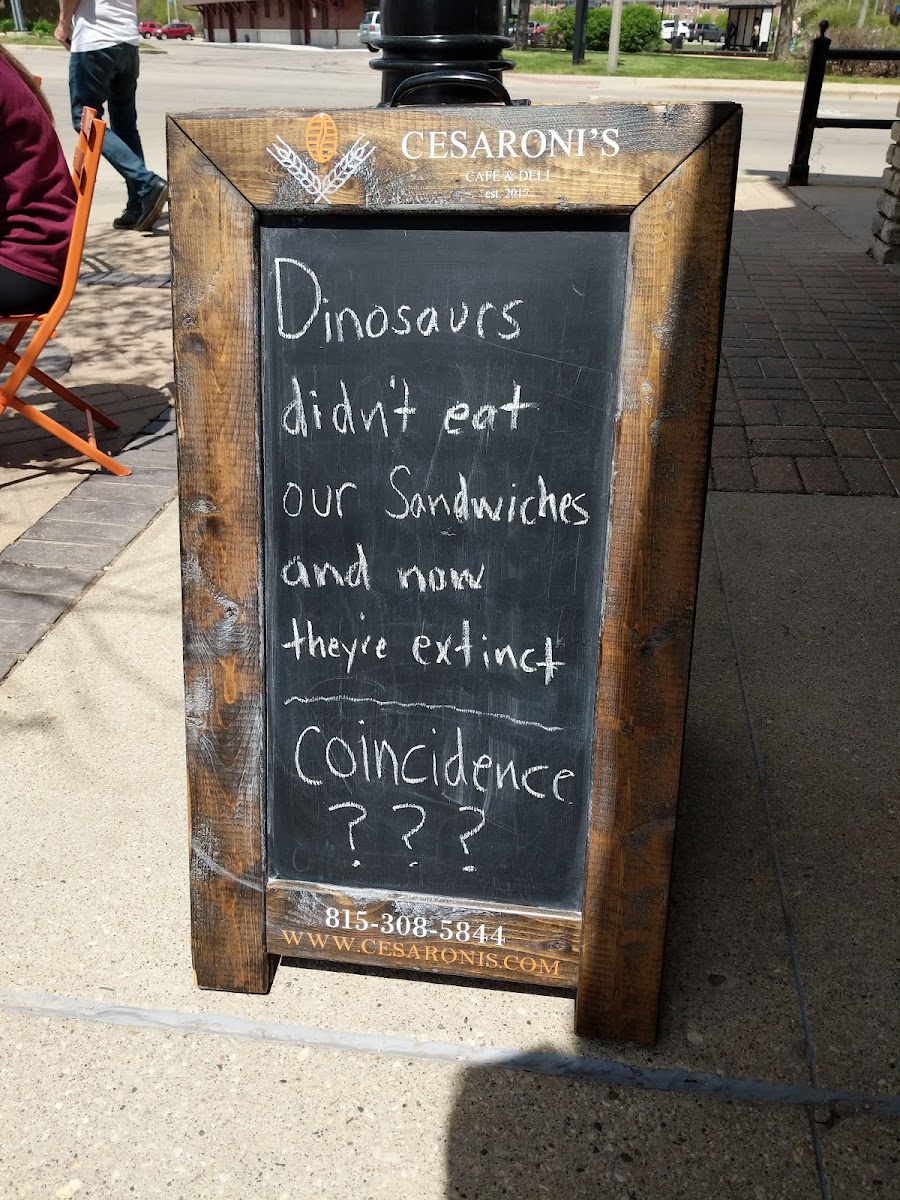 CESARONI'S
CAFE & DELI
est. 2017
Dinosaurs
didn't eat
our Sandwiches
and now
they're extinct
Coincidence
? ? ?
815-308-5844
WWW.CESARONIS.COM